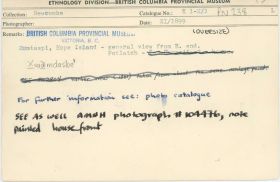 ETHNOLOGY DIVISION—BRITISH COLUMBIA PROVINCIAL MUSEUM
Collection: Newcombe Catalogue No. PN 238
Photographer: Date: XI/1899 (OVERSIZE)
Remarks: BRITISH COLUMBIA PROVINCIAL MUSEUM
VICTORIA, B.C.
Hope Island - general view from E. end.
Potlatch
Xwamdasbe
For further information see: photo catalogue
SEE AS WELL AMNH photograph # 104476, note
painted housefront